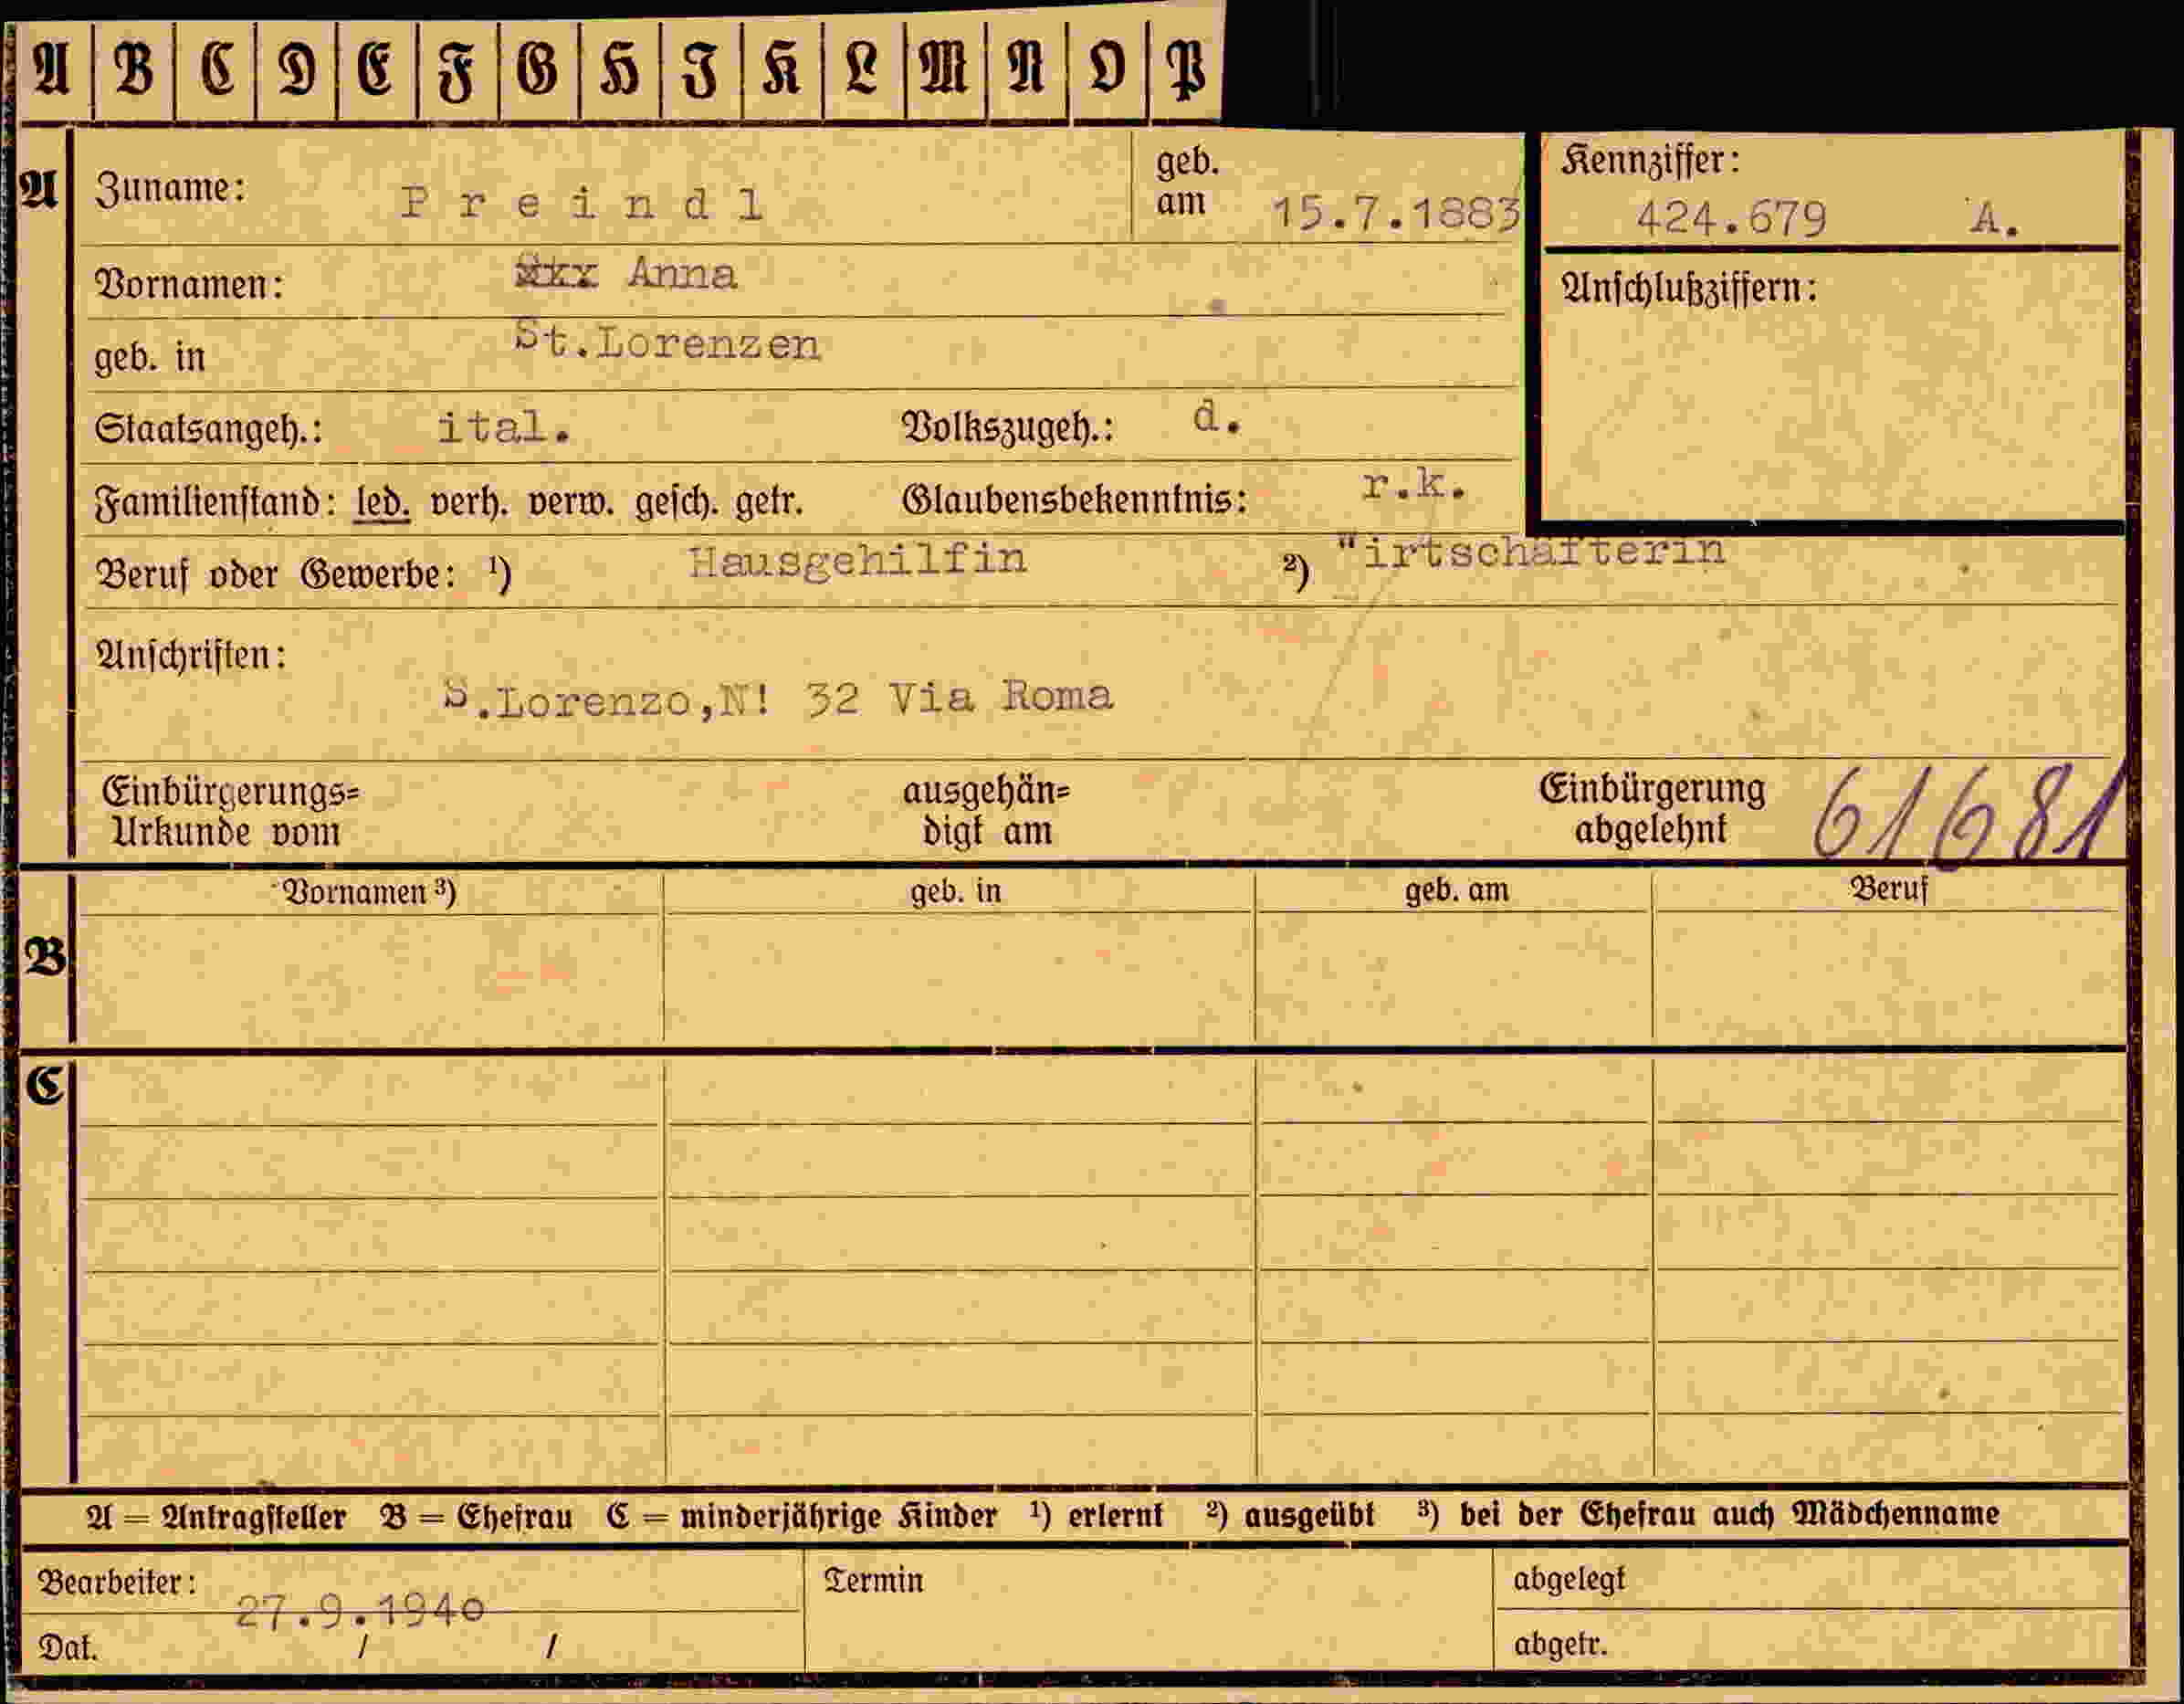 A B C D E F G H I K L M N O P
A Zuname: Preindl geb. am 15.7.1883 Kennziffer: 424.679 A.
Vornamen: Anna Anschlußziffern:
geb. in St.Lorenzen
Staatsangeh.: ital. Volkszugeh.: d.
Familienstand: led. verh. verw. gesch. getr. Glaubensbekenntnis: r.k.
Beruf oder Gewerbe: ¹) Hausgehilfin ²) "irtschafterin
Anschriften:
S.Lorenzo,N! 32 Via Roma
Einbürgerungs= ausgehän= Einbürgerung 61681
Urkunde vom digt am abgelehnt
B Vornamen ³) geb. in geb. am Beruf
C
A = Antragsteller B = Ehefrau C = minderjährige Kinder ¹) erlernt ²) ausgeübt ³) bei der Ehefrau auch Mädchenname
Bearbeiter: Termin abgelegt
27.9.1940
Dat. / / abgetr.